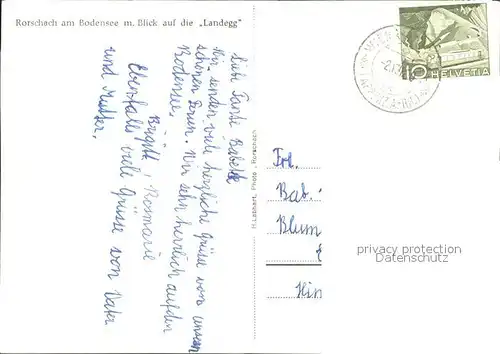 Rorschach am Bodensee m. Blick auf die „Landegg"
Liebe Tante Babette
Wir senden viele herzliche Grüsse vom
schönen Wir sehn herrlich auf den
Bodensee.
Brigitt, Rosmarie
Ebenfalls viele Grüsse von Vater
und Mutter.
Photo, Rorschach
10
HELVETIA
Frl.
Bab.
Blum
privacy protection
Datenschutz